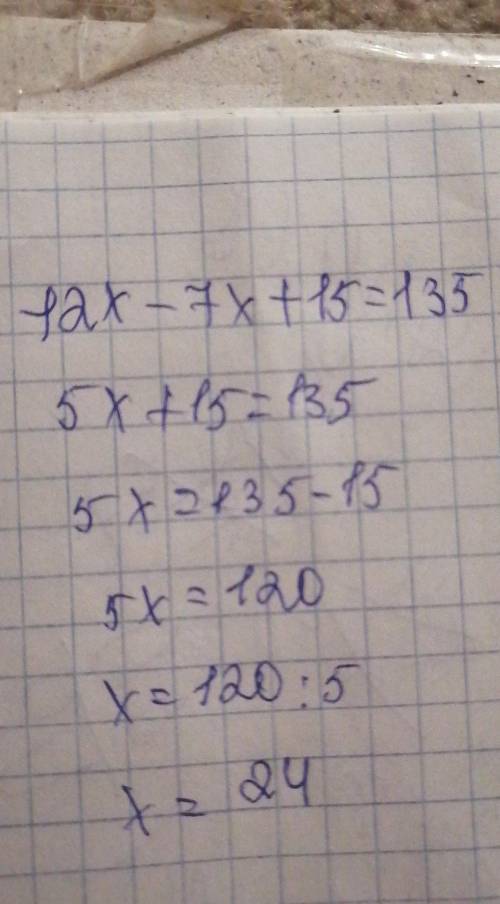 12x - 7x + 15 = 135
5x + 15 = 135
5x = 135 - 15
5x = 120
x = 120 : 5
x = 24